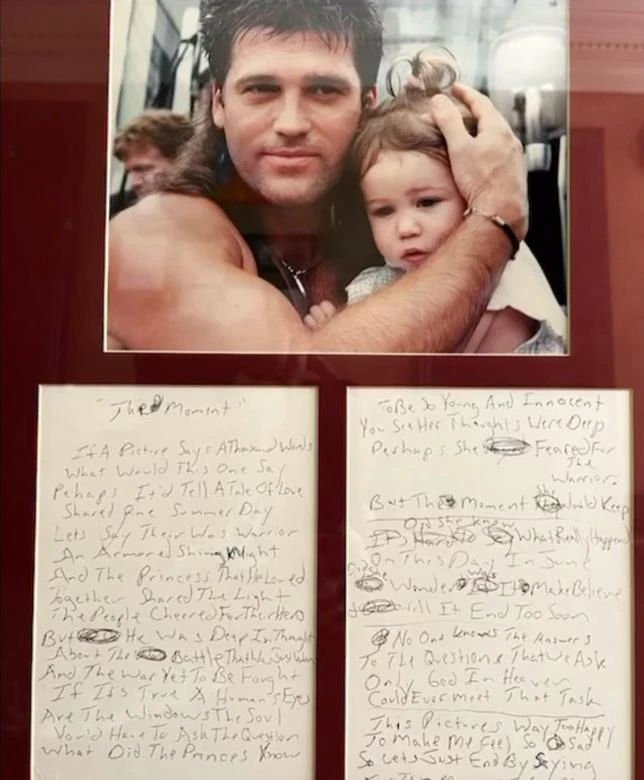 "The Moment"
If A Picture Says A Thousand Words
What Would This One Say
Pehaps It'd Tell A Tale Of Love
Shared One Summer Day
Lets Say Their Was Warrior
An Armored Shining Knight
And The Princess That He Loved
Together Shared The Light
The People Cheered For Their Hero
But He Was Deep In Thought
About The Battle That Was Just Won
And The War Yet To Be Forght
If It's True A Human's Eyes
Are The Windows The Soul
You'd Have To Ask The Question
What Did The Princes Know
To Be So Young And Innocent
You See Her Thoughts Were Deep
Perhaps She Feared For
The
Warrior
But The Moment Would Keep
Did She Know
What Really Happened
On This Day In June
Did She
Wonder Was It Make Believe
Will It End Too Soon
No One Knows The Answers
To The Questions That We Ask
Only God In Heaven
Could Ever Meet That Task
This Pictures Way Too Happy
To Make Me Feel So Sad
So Lets Just End By Saying